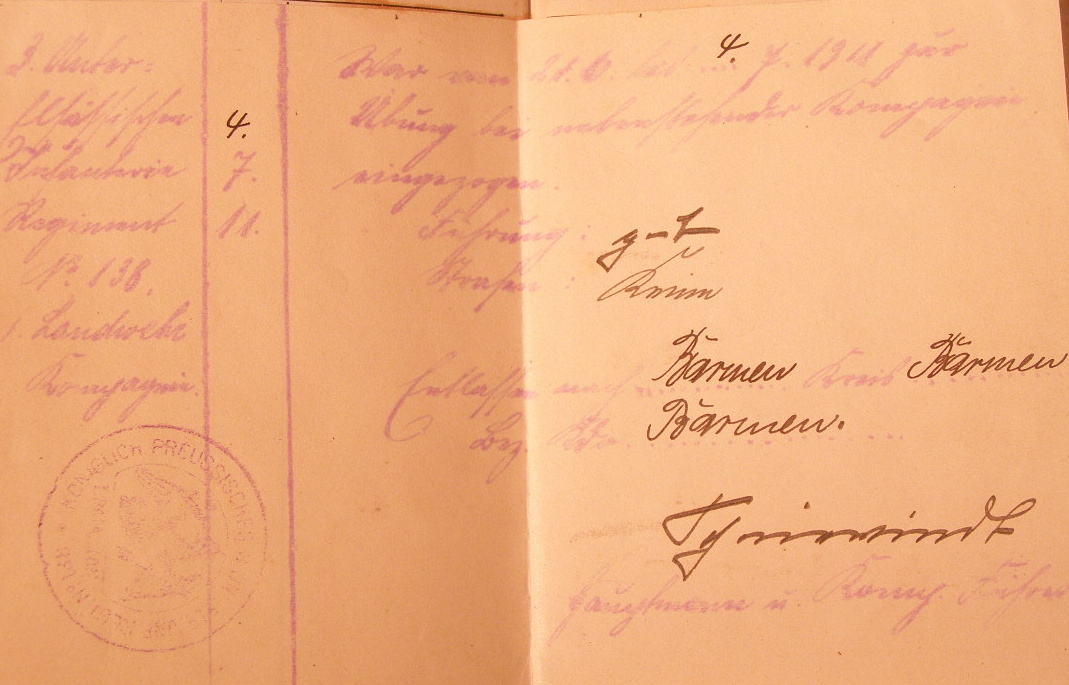 3. Unter-
Elsässischen
Infanterie
Regiment
No 138.
1. Landwehr
Kompagnie.
4.
7.
11.
War vom 21. 6. bis 4. 7. 1911 zur
Übung bei nebenstehender Kompagnie
eingezogen.
Führung: gut
Strafen: Keine
Entlassen nach Barmen Kreis Barmen
Bez. Kdo. Barmen.
Hauptmann u. Komp. Führer
KÖNIGLICH PREUSSISCHES